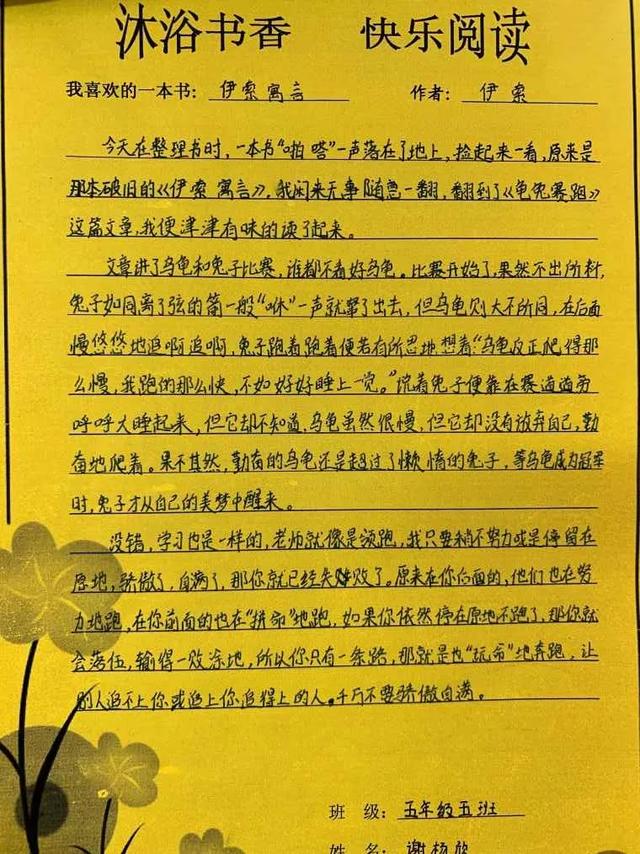 沐浴书香 快乐阅读
我喜欢的一本书： 伊索寓言 作者： 伊索
今天在整理书时，一本书“啪嗒”一声落在了地上，捡起来一看，原来是
那本破旧的《伊索寓言》，我闲来无事随意一翻，翻到了《龟兔赛跑》
这篇文章，我便津津有味的读了起来。
文章讲了乌龟和兔子比赛，谁都不看好乌龟。比赛开始了，果然不出所料，
兔子如同离了弦的箭一般“咻”一声就窜了出去，但乌龟则大不所同，在后面
慢悠悠地追啊追啊，兔子跑着跑着便若有所思地想着“乌龟反正爬得那
么慢，我跑的那么快，不如好好睡上一觉。”说着兔子便靠在赛道道旁
呼呼大睡起来，但它却不知道，乌龟虽然很慢，但它却没有放弃自己，勤
奋地爬着。果不其然，勤奋的乌龟还是超过了懒惰的兔子，等乌龟成为冠军
时，兔子才从自己的美梦中醒来。
没错，学习也是一样的，老师就像是领跑，我只要稍不努力或是停留在
原地，骄傲了，自满了，那你就已经失败了。原来在你后面的，他们也在努
力地跑，在你前面的也在“拼命”地跑，如果你依然停在原地不跑了，那你就
会落伍，输得一败涂地，所以你只有一条路，那就是也“玩命”地奔跑，让
别人追不上你或追上你追得上的人。千万不要骄傲自满。
班 级： 五年级五班
姓 名： 谢杨欣